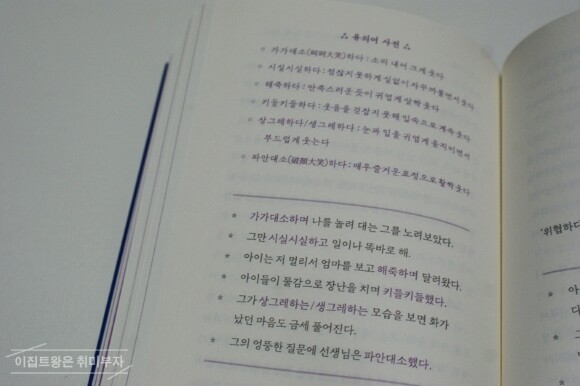 ∴ 용의어 사전 ∴
○ 가가대소(呵呵大笑)하다 : 소리 내어 크게 웃다
○ 시실시실하다 : 점잖지 못하게 실없이 자꾸 까불면서 웃다
○ 해죽하다 : 만족스러운 듯이 귀엽게 살짝 웃다
○ 키들키들하다 : 웃음을 걷잡지 못해 입속으로 계속 웃다
○ 상그레하다/생그레하다 : 눈과 입을 귀엽게 움직이면서
부드럽게 웃는다
○ 파안대소(破顏大笑)하다 : 매우 즐거운 표정으로 활짝 웃다
* 가가대소하며 나를 놀려 대는 그를 노려보았다.
* 그만 시실시실하고 일이나 똑바로 해.
* 아이는 저 멀리서 엄마를 보고 해죽하며 달려왔다.
* 아이들이 물감으로 장난을 치며 키들키들했다.
* 그가 상그레하는/생그레하는 모습을 보면 화가
났던 마음도 금세 풀어진다.
* 그의 엉뚱한 질문에 선생님은 파안대소했다.
'위협하다
아
다
이집트왕은 취미부자